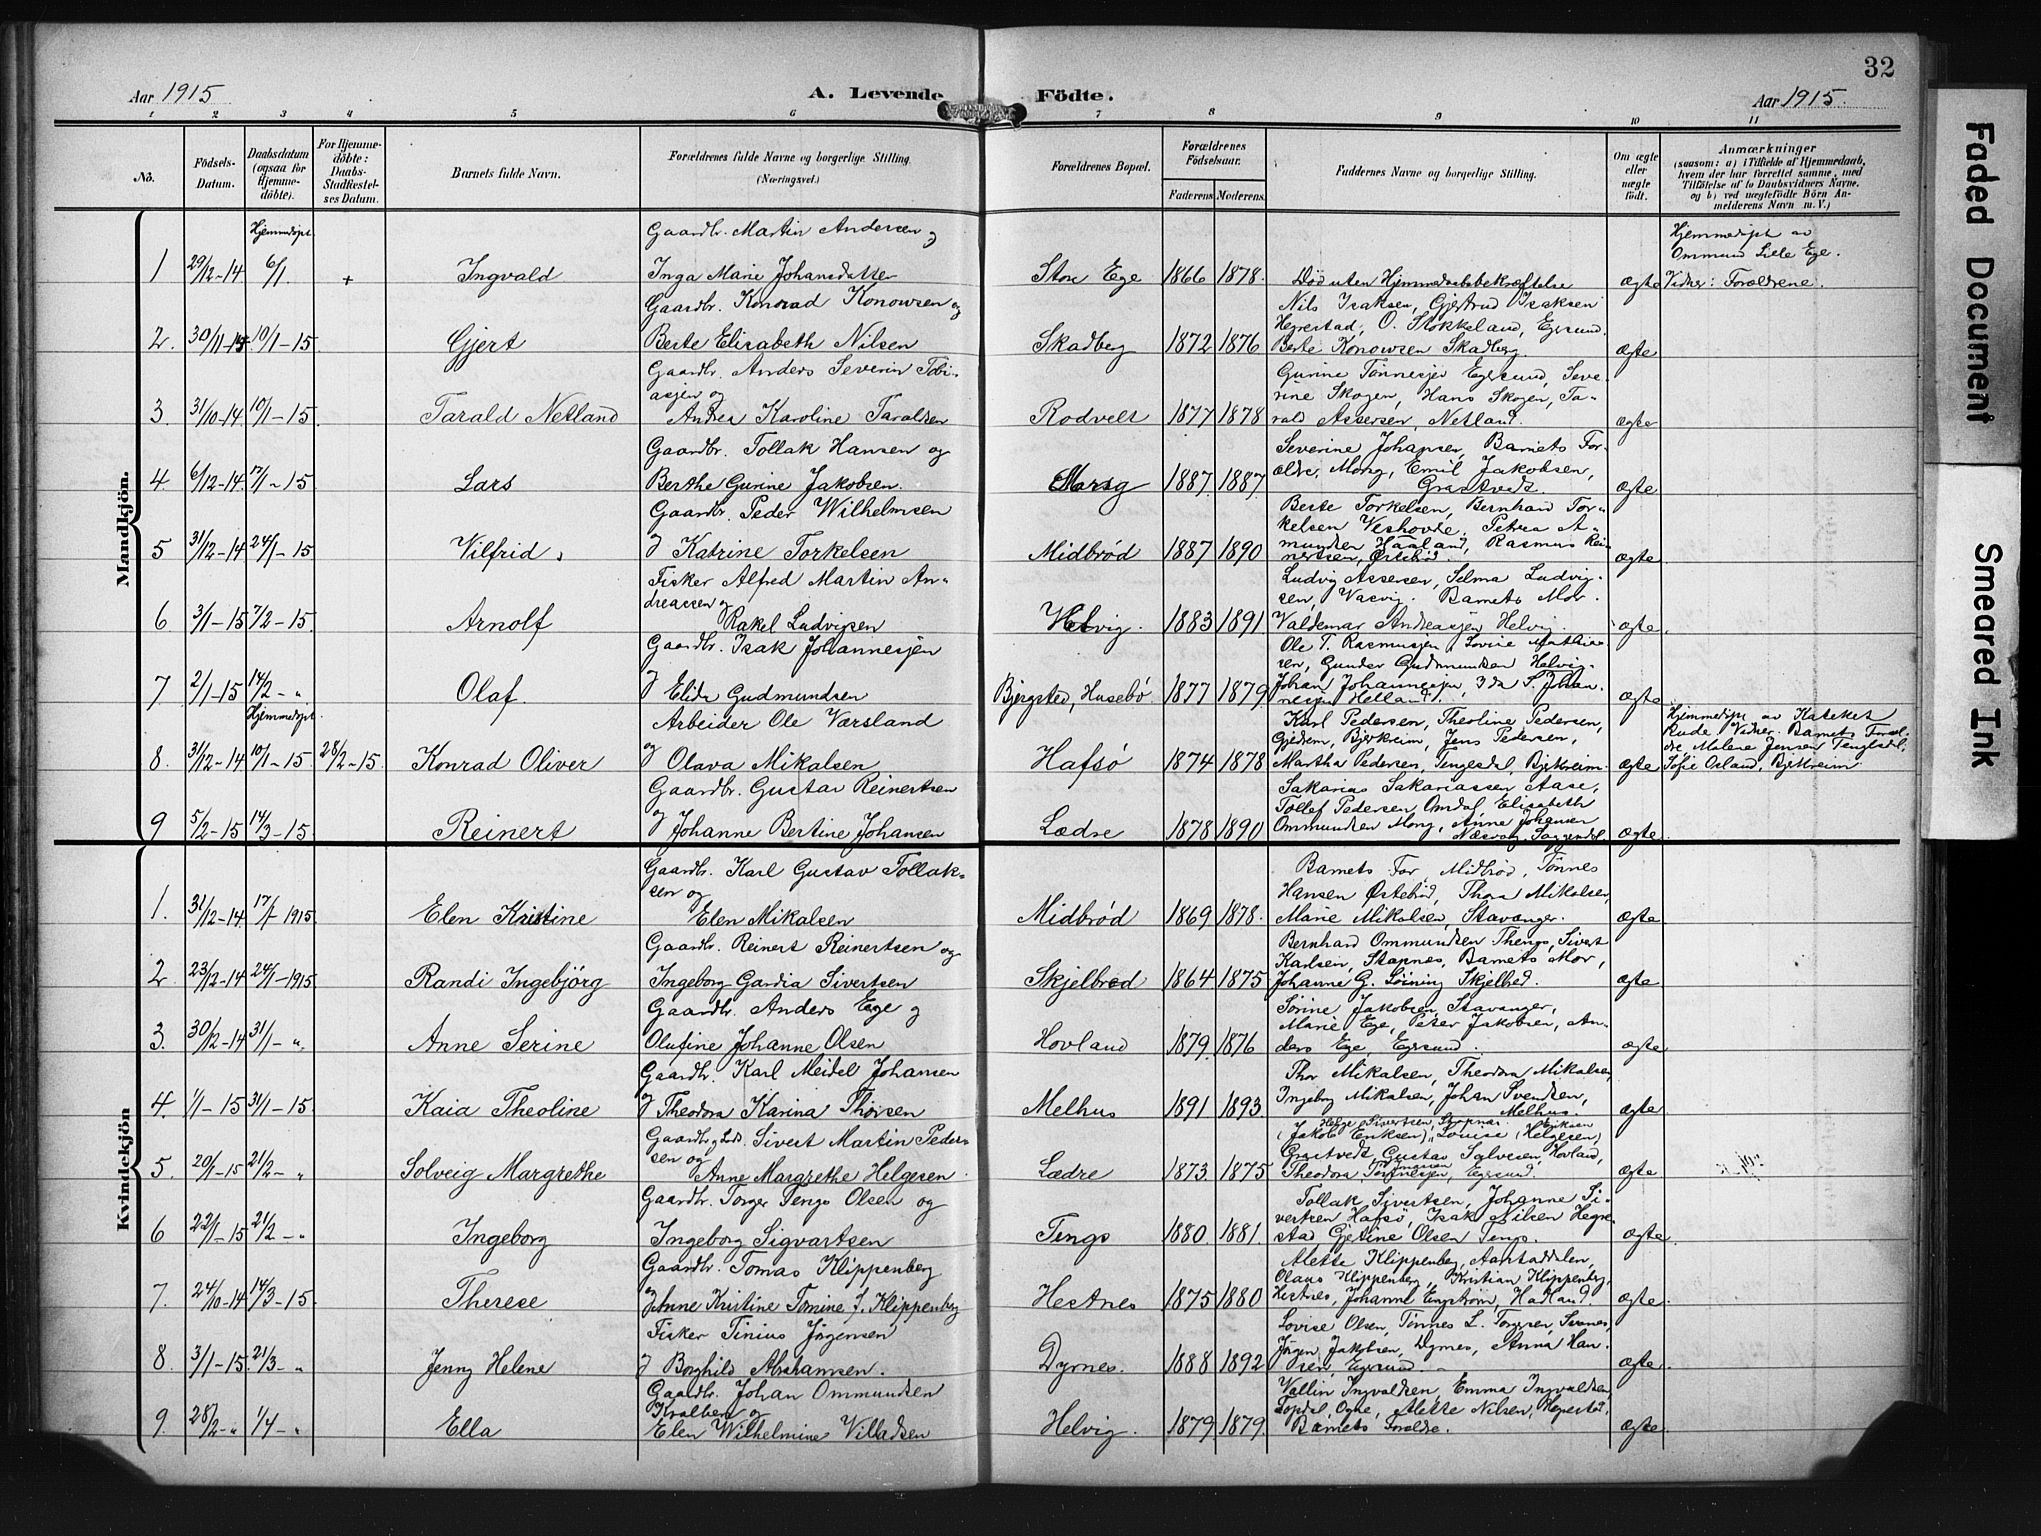 32
Aar 1915
A. Levende Födte.
Aar 1915.
1 2 3 4 5 6 7 8 9 10 11
No.
Födsels-Datum.
Daabsdatum (ogsaa for Hjemmedöbte).
For Hjemmedöbte: Daabs-Stadfæstelses Datum.
Barnets fulde Navn.
Forældrenes fulde Navne og borgerlige Stilling. (Næringsvei.)
Forældrenes Bopæl.
Forældrenes Födselsaar.
Faderens Moderens
Faddernes Navne og borgerlige Stilling.
Om ægte eller uægte födt.
Anmærkninger
(saasom: a) i Tilfælde af Hjemmedaab, hvem der har forrettet samme, med Tilföielse af to Daabsvidners Navne, og b) ved uægtefödte Börn Anmelderens Navn m. V.)
Mandkjön.
1 29/12-14 Hjemmedöpt 6/1 + Ingvald
Gaardbr. Martin Andersen og
Inga Marie Johansdatter
Store Ege 1866 1878.
Död uten Hjemmedaabsbekræftelse
ægte
Hjemmedöpt av
Ommund Lille Ege.
Vidner: Forældrene.
2. 10/1-15. Gjert
Gaardbr. Konrad Konowsen og
Berte Elisabeth Nilsen
Skadberg 1872 1876
Nils Isaksen, Gjertrud Isaksen
Hegrestad, O. Stokkeland, Egersund.
Berte Konowsen Skadberg.
ægte
3. 31/10-14 10/1-15. Tarald Netland
Gaardbr. Anders Severin Tobi-
asjen og
Andrea Karoline Taraldsen
Rodvelt 1877 1878
Gurine Tönnesjen Egersund, Seve-
rine Skogen, Hans Skogen, Ta-
rald Assersen, Netland.
ægte
4. 6/12-14. 17/1-15 Lars
Gaardbr. Tollak Hansen og
Berthe Gurine Jakobsen.
Mong 1887. 1887.
Severine Johansen, Barnets For-
ældre, Mong, Emil Jakobsen,
Grastveit.
ægte
5 31/12-14 24/1-15 Vilfrid
Gaardbr. Peder Wilhelmsen
og Katrine Torkelsen
Midbrød 1887 1890
Berte Torkelsen, Bernhard Tor-
kelsen Veshovde, Petrea A-
mundsen Haaland, Rasmus Rei-
nertsen, Østebö.
ægte
6 3/1-15 7/2-15. Arnolf
Fisker Alfred Martin An-
dreassen og
Rakel Ludvigsen
Helvig. 1883 1891
Ludvig Assersen, Selma Ludvig-
sen, Vasvig. Barnets Mor.
Valdemar Andreasjen Helvig.
ægte.
7 2/1-15 14/2-" Olaf.
Gaardbr. Isak Johannesjen
og Elida Gudmundsen
Bjergsted, Husebö 1877 1879
Ole T. Rasmusjen, Lovise Mathia-
sen, Gunder Gudmundsen Helvig.
Johan Johannesjen, Ida S. Johan-
nesjen Helland.
ægte
8. 31/12-14 Hjemmedöpt 10/1-15. 28/2-15. Konrad Oliver
Arbeider Ole Værsland
og Olava Mikalsen
Hafsö 1874 1878
Karl Pedersen, Theoline Pedersen,
Gjedrem, Bjerkreim, Jens Pedersen,
Martha Pedersen, Tengesdal, Bjerkreim.
ægte
Hjemmedöpt av Kateket
Rude Vidner. Barnets Foræl-
dre, Malene Jensen Tengesdal,
Sofie Osland, Bjerkreim
9 5/2-15 14/3-15. Reinert
Gaardbr. Gustav Reinertsen
og Johanne Bertine Johansen
Lædre 1878 1890
Sakarias Sakariassen Aase,
Tollef Pedersen Omdal Elisabeth
Ommundsen Mong, Anne Johansen
Næsvåg, Soggendal
ægte
Kvindekjön
1. 31/12-14. 17/1-1915. Elen Kristine
Gaardbr. Karl Gustav Tollak-
sen og
Elen Mikalsen
Midbrød 1869 1878.
Barnets Far, Midbrød, Tönnes
Hansen Østebö, Thora Mikalsen,
Marie Mikalsen, Stavanger.
ægte
2 23/12-14 24/1-1915 Randi Ingebjörg
Gaardbr. Reinert Reinertsen og
Ingeborg Gardia Sivertsen
Skjelbred 1864 1875
Bernhard Ommundsen Thengs, Sivert
Karlsen, Stapnes, Barnets Mor,
Johanne G. Löining Skjelbred.
ægte
3. 30/12-14 31/1-". Anne Serine
Gaardbr. Anders Ege og
Olufine Johanne Olsen
Hovland 1879. 1876
Sörine Jakobsen, Stavanger,
Marie Ege, Peter Jakobsen, An-
ders Ege, Egersund.
ægte
4. 1/1-15 31/1-15. Kaia Theoline
Gaardbr. Karl Meidel Johansen
og Theodora Karina Thorsen
Melhus 1891 1893.
Thor Mikalsen, Theodora Mikalsen,
Ingeborg Mikalsen, Johan Svendsen,
Melhus.
ægte
5. 20/1-15 21/2-" Solveig Margrethe
Gaardbr. og Lods. Sivert Martin Peder-
sen og
Anne Margrethe Helgesen
Lædre 1873. 1875
Helge Sivertsen, Stapnes. Eriksen
(Jakob Eriksen), Lovise (Helgesen)
Grastveit, Gustav Salvesen, Hovland,
Theodora Tönnesjen, Egersund.
ægte
6 22/1-15 21/2-" Ingeborg
Gaardbr. Torger Tengs Olsen og
Ingeborg Sigvartsen
Tengs 1880. 1881.
Tollak Sivertsen, Johanne Si-
vertsen Hafsö, Isak Nilsen Hegre-
stad, Gjetine Olsen Tengs.
ægte.
7. 24/10-14 14/3-15. Therese
Gaardbr. Tomas Klippenberg
og Anne Kristine Tomine f. Klippenberg
Hestnes 1875 1880
Alette Klippenberg, Aarstaddalen,
Olaus Klippenberg, Kristian Klippenberg,
Hestnes, Johanne Engström, Haaland.
ægte.
8. 3/1-15. 21/3-" Jenny Helene
Fisker Tinius Jörgensen
og Borghild Abrahamsen.
Dyrnes. 1888 1892
Lovise Olsen, Tönnes L. Torgersen, Svanes,
Jörgen Jakobsen, Dyrnes, Anna Han-
sen, Egersund
ægte.
9. 28/2-" 1/4-" Ella
Gaardbr. Johan Ommundsen
Kvalberg og
Elen Wilhelmine Villadsen
Helvig. 1879 1879.
Vallin Ingvaldsen, Emma Ingvaldsen,
Topdal, Ogne, Alette Nilsen, Hegrestad,
Barnets Forældre.
ægte
Faded Document
Smeared Ink